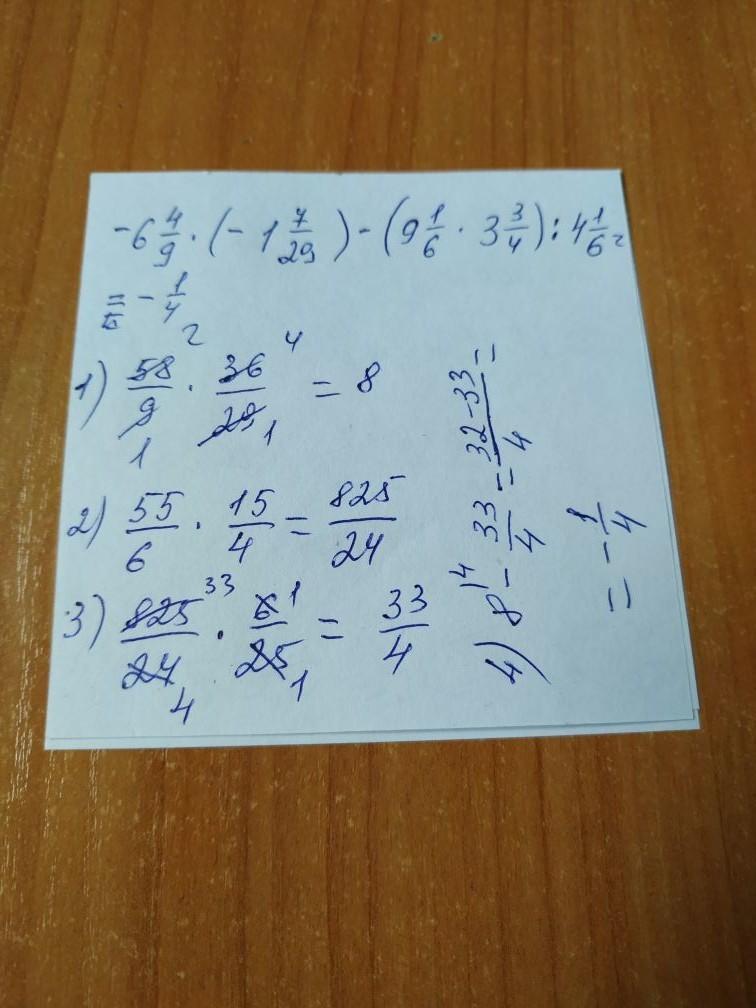 -6 4/9 · (-1 7/29) - (9 1/6 · 3 3/4) : 4 1/6 =
= -1/4
1) 58/9 · 36/29 = 8
2 4
1 1
2) 55/6 · 15/4 = 825/24
3) 825/24 · 6/25 = 33/4
33 1
4 1
4) 8 - 33/4 = 32-33/4 =
4
= -1/4